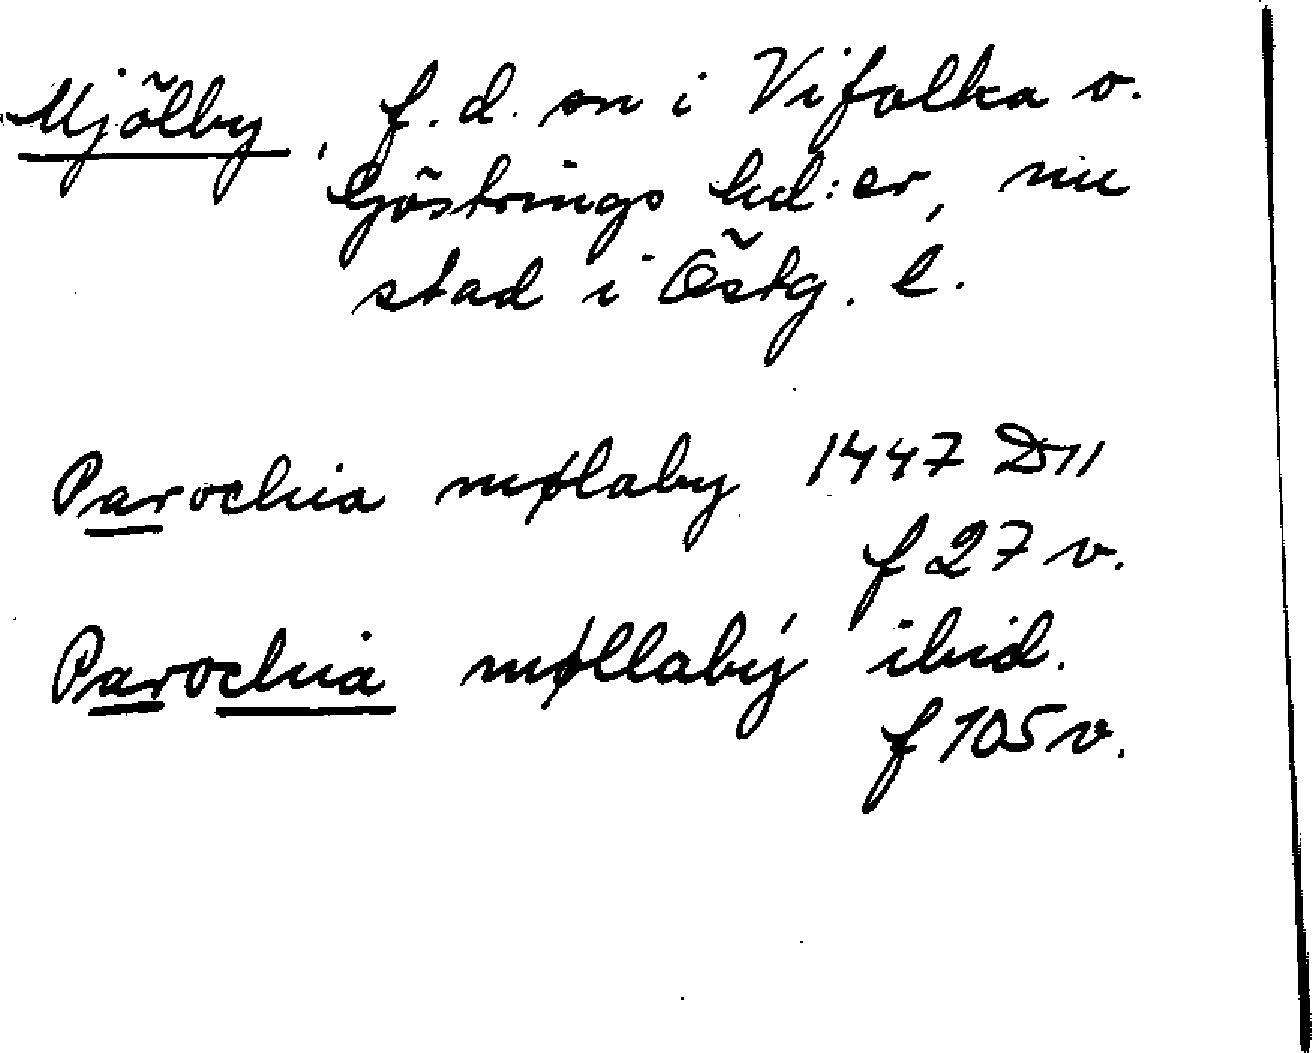 Mjölby, f.d. sn i Vifolka o.
Göstrings hd:er, nu
stad i Östg. l.
Parochia mølaby 1447 D11
f 27 v.
Parochia møllabý ibid.
f 105 v.